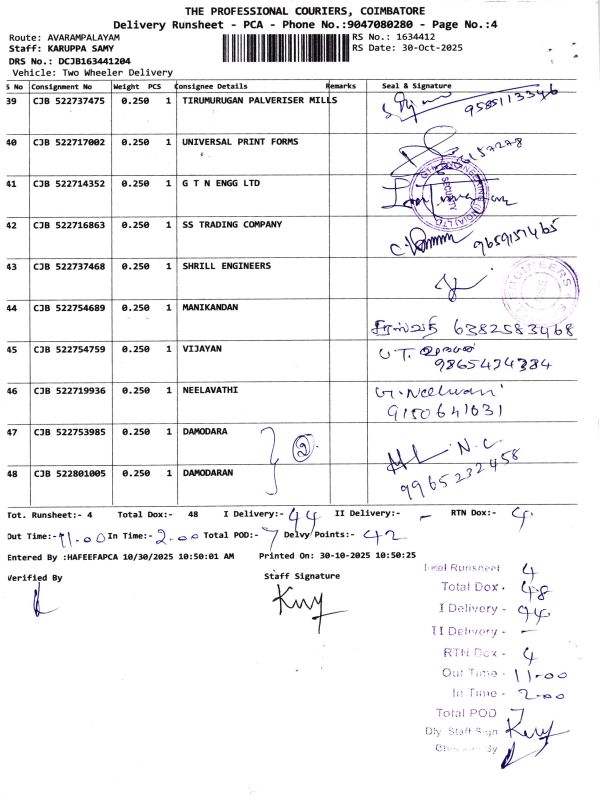 THE PROFESSIONAL COURIERS, COIMBATORE
Delivery Runsheet - PCA - Phone No.:9047080280 - Page No.:4
Route: AVARAMPALAYAM RS No.: 1634412
Staff: KARUPPA SAMY RS Date: 30-Oct-2025
DRS No.: DCJB163441204
Vehicle: Two Wheeler Delivery
S No Consignment No Weight PCS Consignee Details Remarks Seal & Signature
39 CJB 522737475 0.250 1 TIRUMURUGAN PALVERISER MILLS
40 CJB 522717002 0.250 1 UNIVERSAL PRINT FORMS
41 CJB 522714352 0.250 1 G T N ENGG LTD
SECURITY
42 CJB 522716863 0.250 1 SS TRADING COMPANY 9659157465
43 CJB 522737468 0.250 1 SHRILL ENGINEERS
ENGINEERS
44 CJB 522754689 0.250 1 MANIKANDAN 6382583468
45 CJB 522754759 0.250 1 VIJAYAN
46 CJB 522719936 0.250 1 NEELAVATHI
9150641031
47 CJB 522753985 0.250 1 DAMODARA N.C.
2
48 CJB 522801005 0.250 1 DAMODARAN 9965232458
Tot. Runsheet:- 4 Total Dox:- 48 I Delivery:- 44 II Delivery:- - RTN Dox:- 4
Out Time:- 11.00 In Time:- 2.00 Total POD:- 7 Delvy Points:- 42
Entered By :HAFEEFAPCA 10/30/2025 10:50:01 AM Printed On: 30-10-2025 10:50:25
Verified By Staff Signature
Total Runsheet 4
Total Dox - 48
I Delivery - 44
II Delivery - -
RTH Dox - 4
Out Time - 11.00
In Time - 2.00
Total POD 7
Dly. Staff Sign
Checked By